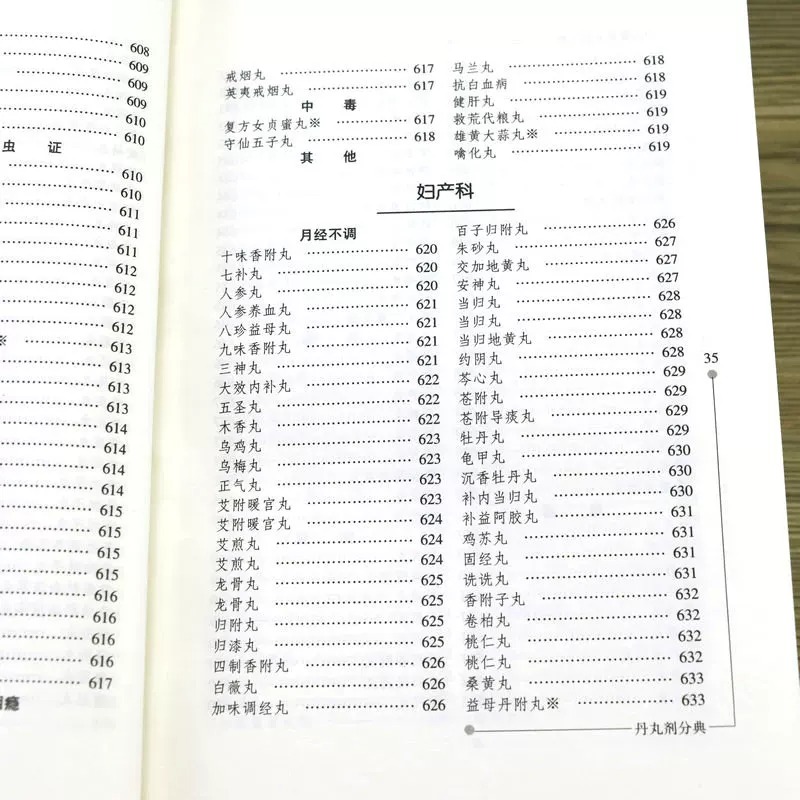 608
609
609
609
610
610
虫 证
610
610
611
611
611
612
612
612
612
※ 613
613
613
613
614
614
614
614
615
615
615
615
616
616
616
616
617
瘾
戒烟丸 617
英夷戒烟丸 617
中 毒
复方女贞蜜丸※ 617
守仙五子丸 618
其 他
马兰丸 618
抗白血病 618
健肝丸 619
救荒代粮丸 619
雄黄大蒜丸※ 619
噙化丸 619
妇产科
月经不调
十味香附丸 620
七补丸 620
人参丸 620
人参养血丸 621
八珍益母丸 621
九味香附丸 621
三神丸 621
大效内补丸 622
五圣丸 622
木香丸 622
乌鸡丸 623
乌梅丸 623
正气丸 623
艾附暖宫丸 623
艾附暖宫丸 624
艾煎丸 624
艾煎丸 624
龙骨丸 625
龙骨丸 625
归附丸 625
归漆丸 625
四制香附丸 626
白薇丸 626
加味调经丸 626
百子归附丸 626
朱砂丸 627
交加地黄丸 627
安神丸 627
当归丸 628
当归丸 628
当归地黄丸 628
约阴丸 628
芩心丸 629
苍附丸 629
苍附导痰丸 629
牡丹丸 629
龟甲丸 630
沉香牡丹丸 630
补内当归丸 630
补益阿胶丸 631
鸡苏丸 631
固经丸 631
诜诜丸 631
香附子丸 632
卷柏丸 632
桃仁丸 632
桃仁丸 632
桑黄丸 633
益母丹附丸※ 633
35
丹丸剂分典